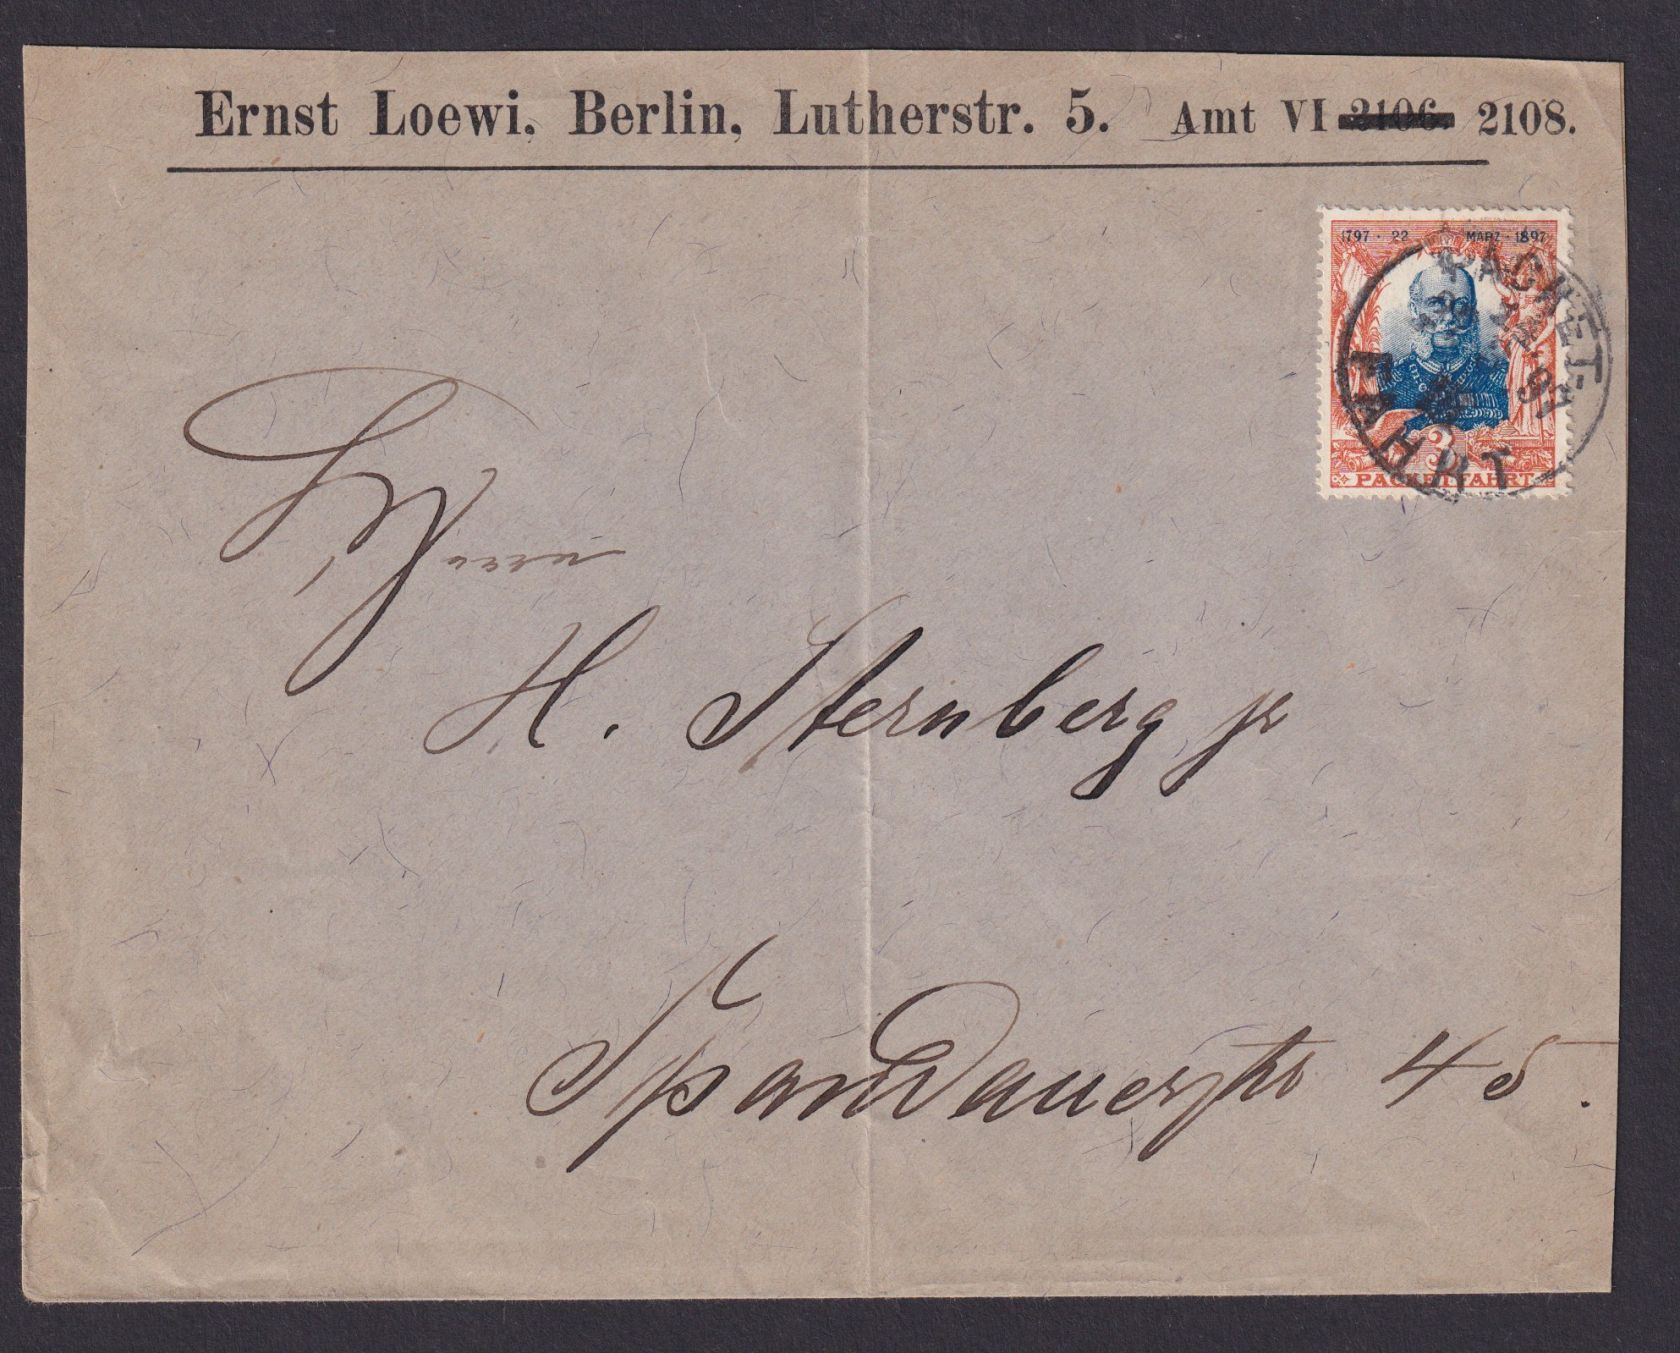 Ernst Loewi, Berlin, Lutherstr. 5. Amt VI 2106. 2108.
1797 · 22 MÄRZ · 1897
PACKET-
FAHRT
3
PACKETFAHRT
Herrn
H. Sternberg jr
Spandauerstr 45.